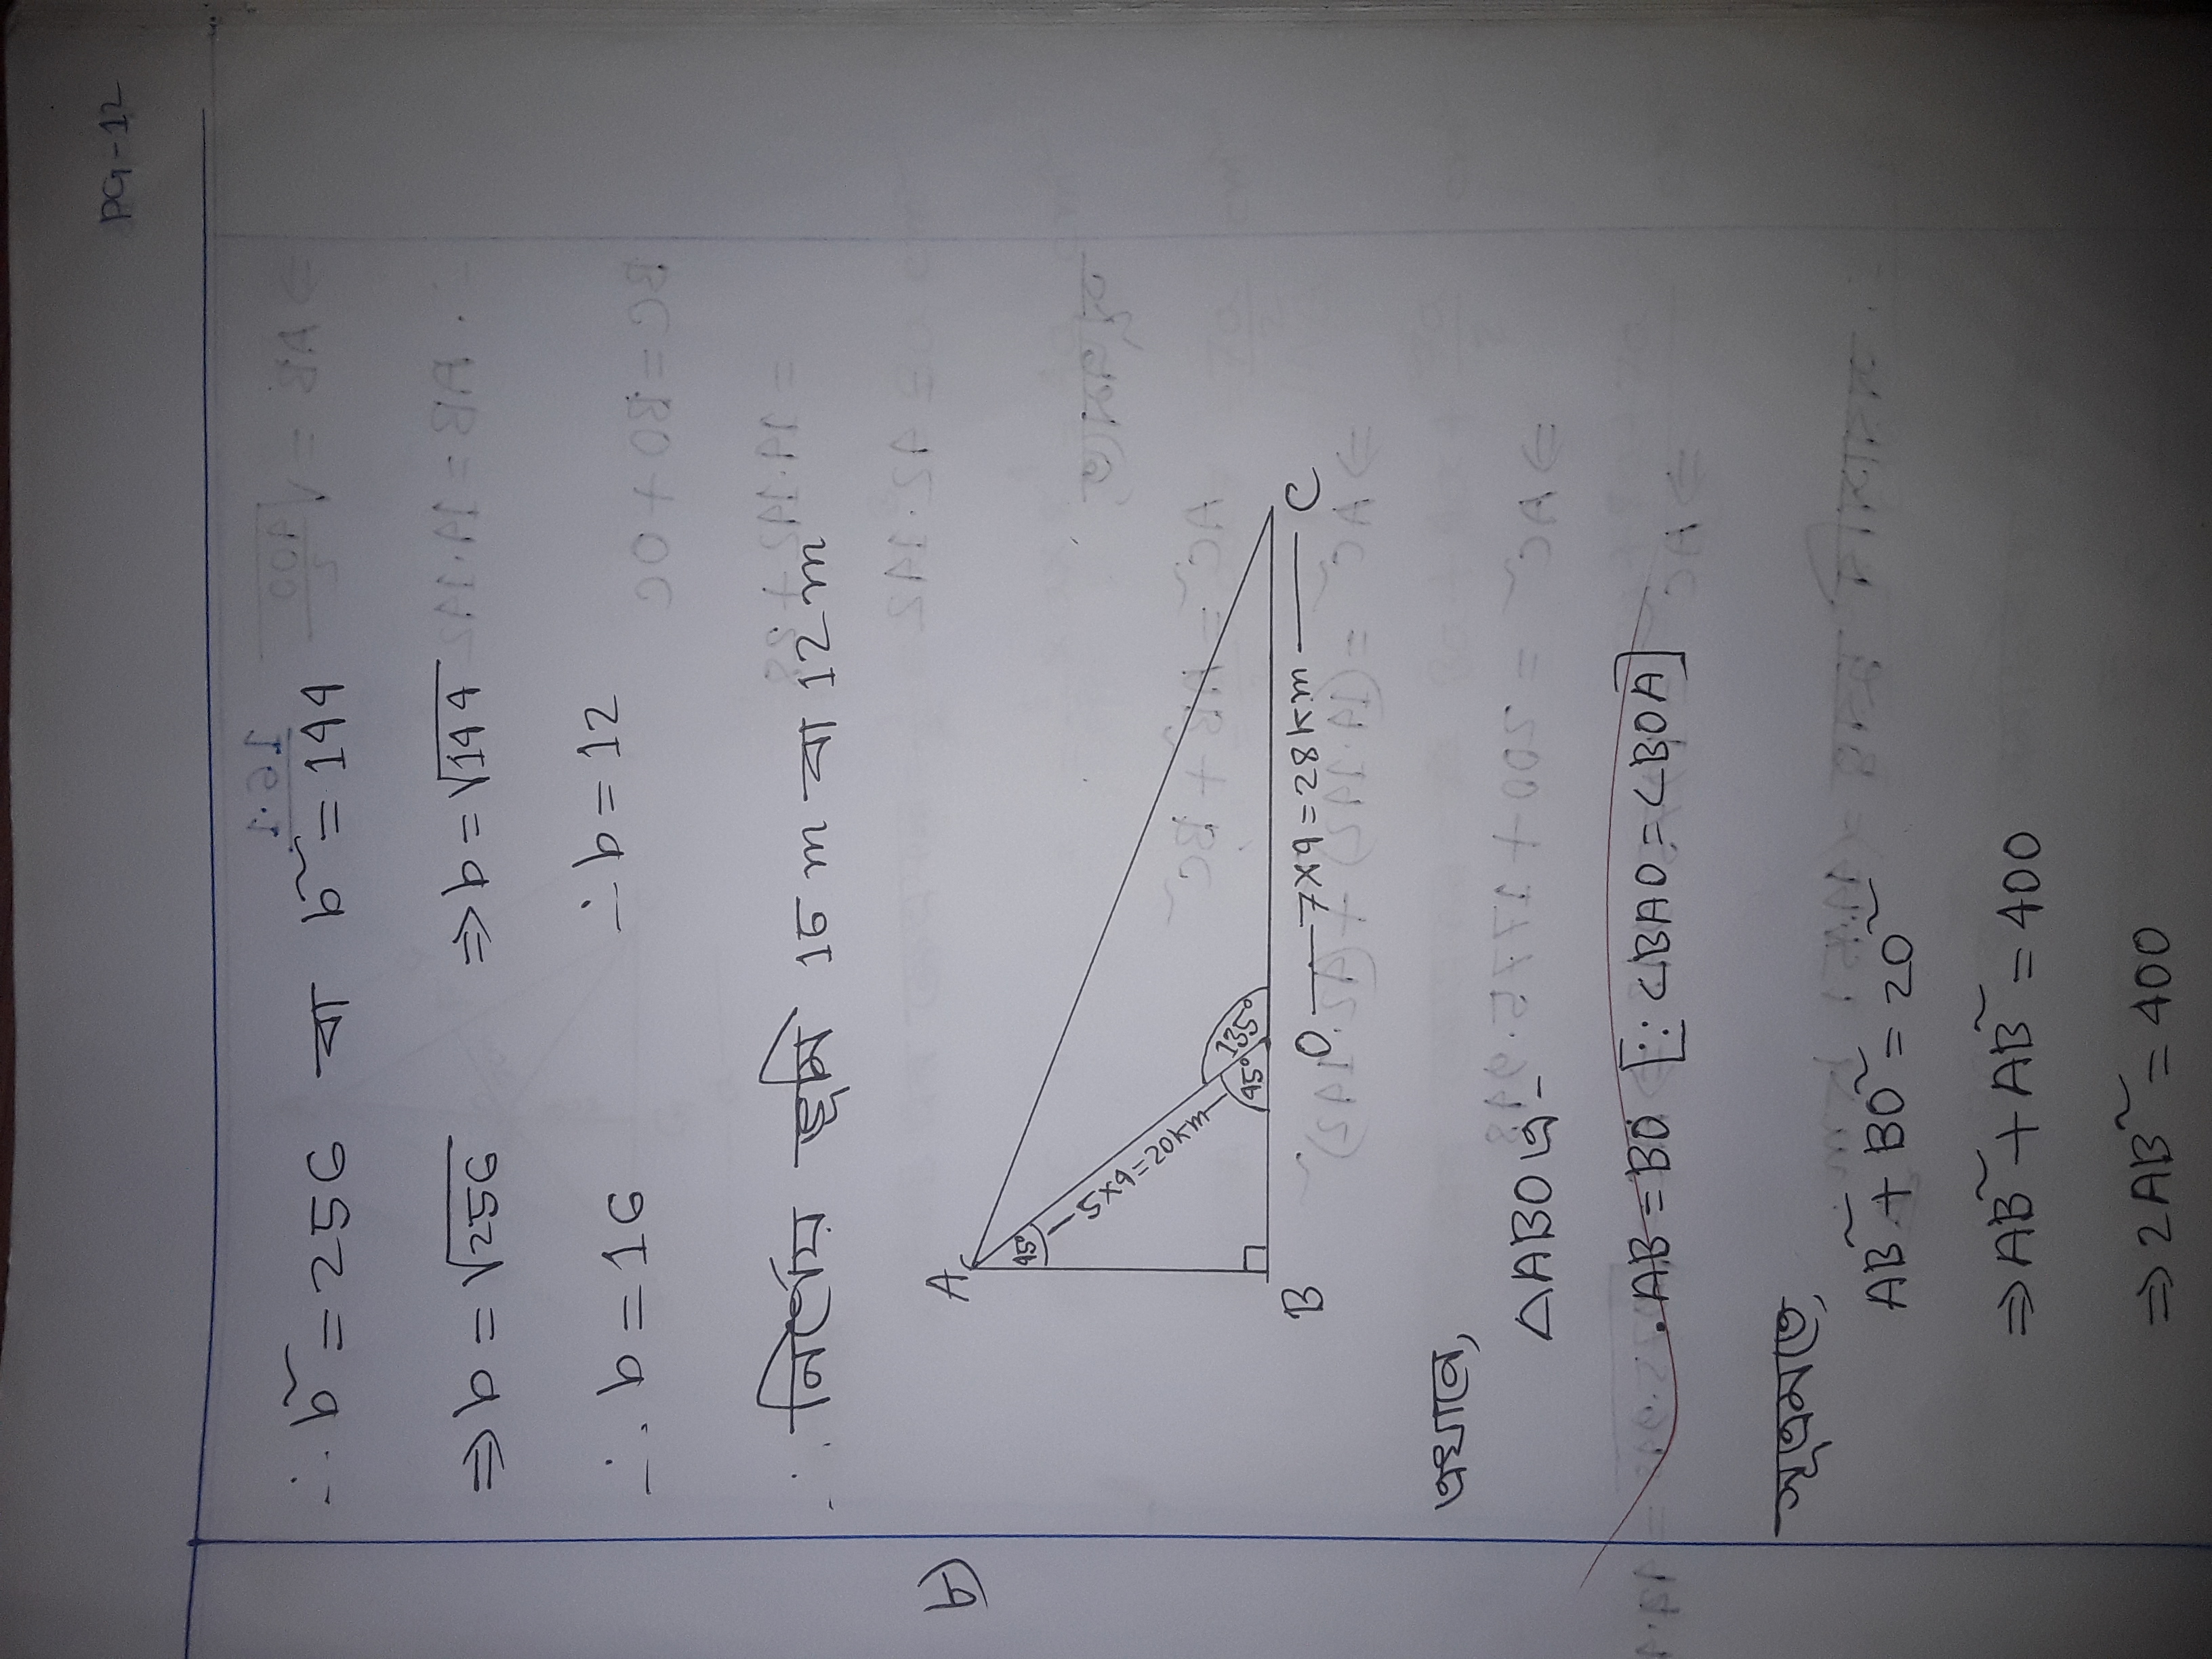 PG-12
∴ b² = 256 বা b² = 144
⇒ b = √256 ⇒ b = √144
∴ b = 16 ∴ b = 12
∴ নির্ণেয় ভূমি 16 m বা 12 m
৮)
A
45°
5×4=20km
45° 135°
B O 7×4=28km C
এখানে,
△ABO এ -
AB = BO [∵ ∠BAO = ∠BOA]
সূত্রমতে,
AB² + BO² = 20²
⇒ AB² + AB² = 400
⇒ 2AB² = 400